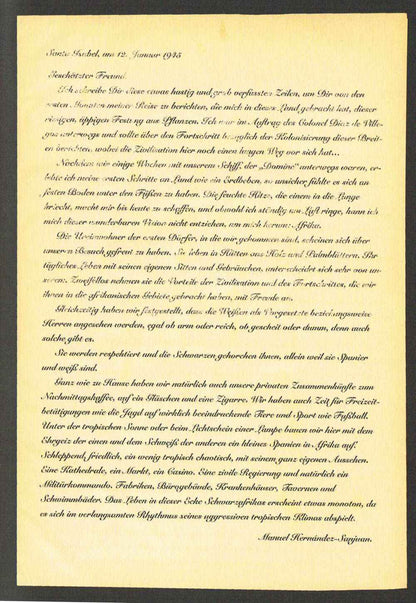 Santa Isabel, am 12. Januar 1945
Geschätzter Freund
Ich schreibe Dir diese etwas hastig und grob verfassten Zeilen, um Dir von den
ersten Monaten meiner Reise zu berichten, die mich in dieses Land gebracht hat, dieser
riesigen, üppigen Festung aus Pflanzen. Ich war im Auftrag des Colonel Díaz de Ville-
gas unterwegs und sollte über den Fortschritt bezüglich der Kolonisierung dieser Breit-
en berichten, wobei die Zivilisation hier noch einen langen Weg vor sich hat...
Nachdem wir einige Wochen mit unserem Schiff, der „Domine" unterwegs waren, er-
lebte ich meine ersten Schritte an Land wie ein Erdbeben, so unsicher fühlte es sich an
festen Boden unter den Füßen zu haben. Die feuchte Hitze, die einem in die Lunge
kriecht, macht mir bis heute zu schaffen, und obwohl ich ständig um Luft ringe, kann ich
mich dieser wunderbaren Vision nicht entziehen, um mich herum: Afrika.
Die Ureinwohner der ersten Dörfer, in die wir gekommen sind, scheinen sich über
unseren Besuch gefreut zu haben. Sie leben in Hütten aus Holz und Palmblättern. Ihr
tägliches Leben mit seinen eigenen Sitten und Gebräuchen, unterscheidet sich sehr von un-
serem. Zweifellos nehmen sie die Vorteile der Zivilisation und des Fortschrittes, die wir
ihnen in die afrikanischen Gebiete gebracht haben, mit Freude an.
Gleichzeitig haben wir festgestellt, dass die Weißen als Vorgesetzte beziehungsweise
Herren angesehen werden, egal ob arm oder reich, ob gescheit oder dumm, denn auch
solche gibt es.
Sie werden respektiert und die Schwarzen gehorchen ihnen, allein weil sie Spanier
und weiß sind.
Ganz wie zu Hause haben wir natürlich auch unsere privaten Zusammenkünfte zum
Nachmittagskaffee, auf ein Gläschen und eine Zigarre. Wir haben auch Zeit für Freizeit-
betätigungen wie die Jagd auf wirklich beeindruckende Tiere und Sport wie Fußball.
Unter der tropischen Sonne oder beim Lichtschein einer Lampe bauen wir hier mit dem
Ehrgeiz der einen und dem Schweiß der anderen ein kleines Spanien in Afrika auf.
Schleppend, friedlich, ein wenig tropisch chaotisch, mit seinem ganz eigenen Aussehen.
Eine Kathedrale, ein Markt, ein Casino. Eine zivile Regierung und natürlich ein
Militärkommando. Fabriken, Bürogebäude, Krankenhäuser, Tavernen und
Schwimmbäder. Das Leben in dieser Ecke Schwarzafrikas erscheint etwas monoton, da
es sich im verlangsamten Rhythmus seines aggressiven tropischen Klimas abspielt.
Manuel Hernández-Sanjuan.